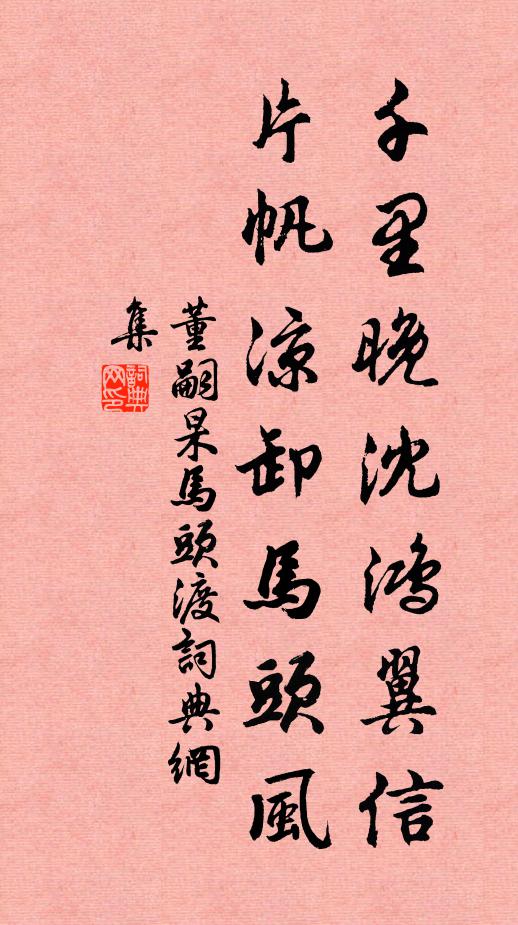 千里晚沈鴻翼信
片帆涼卸馬頭風
董嗣杲馬頭渡詞典網
集
詞典網印